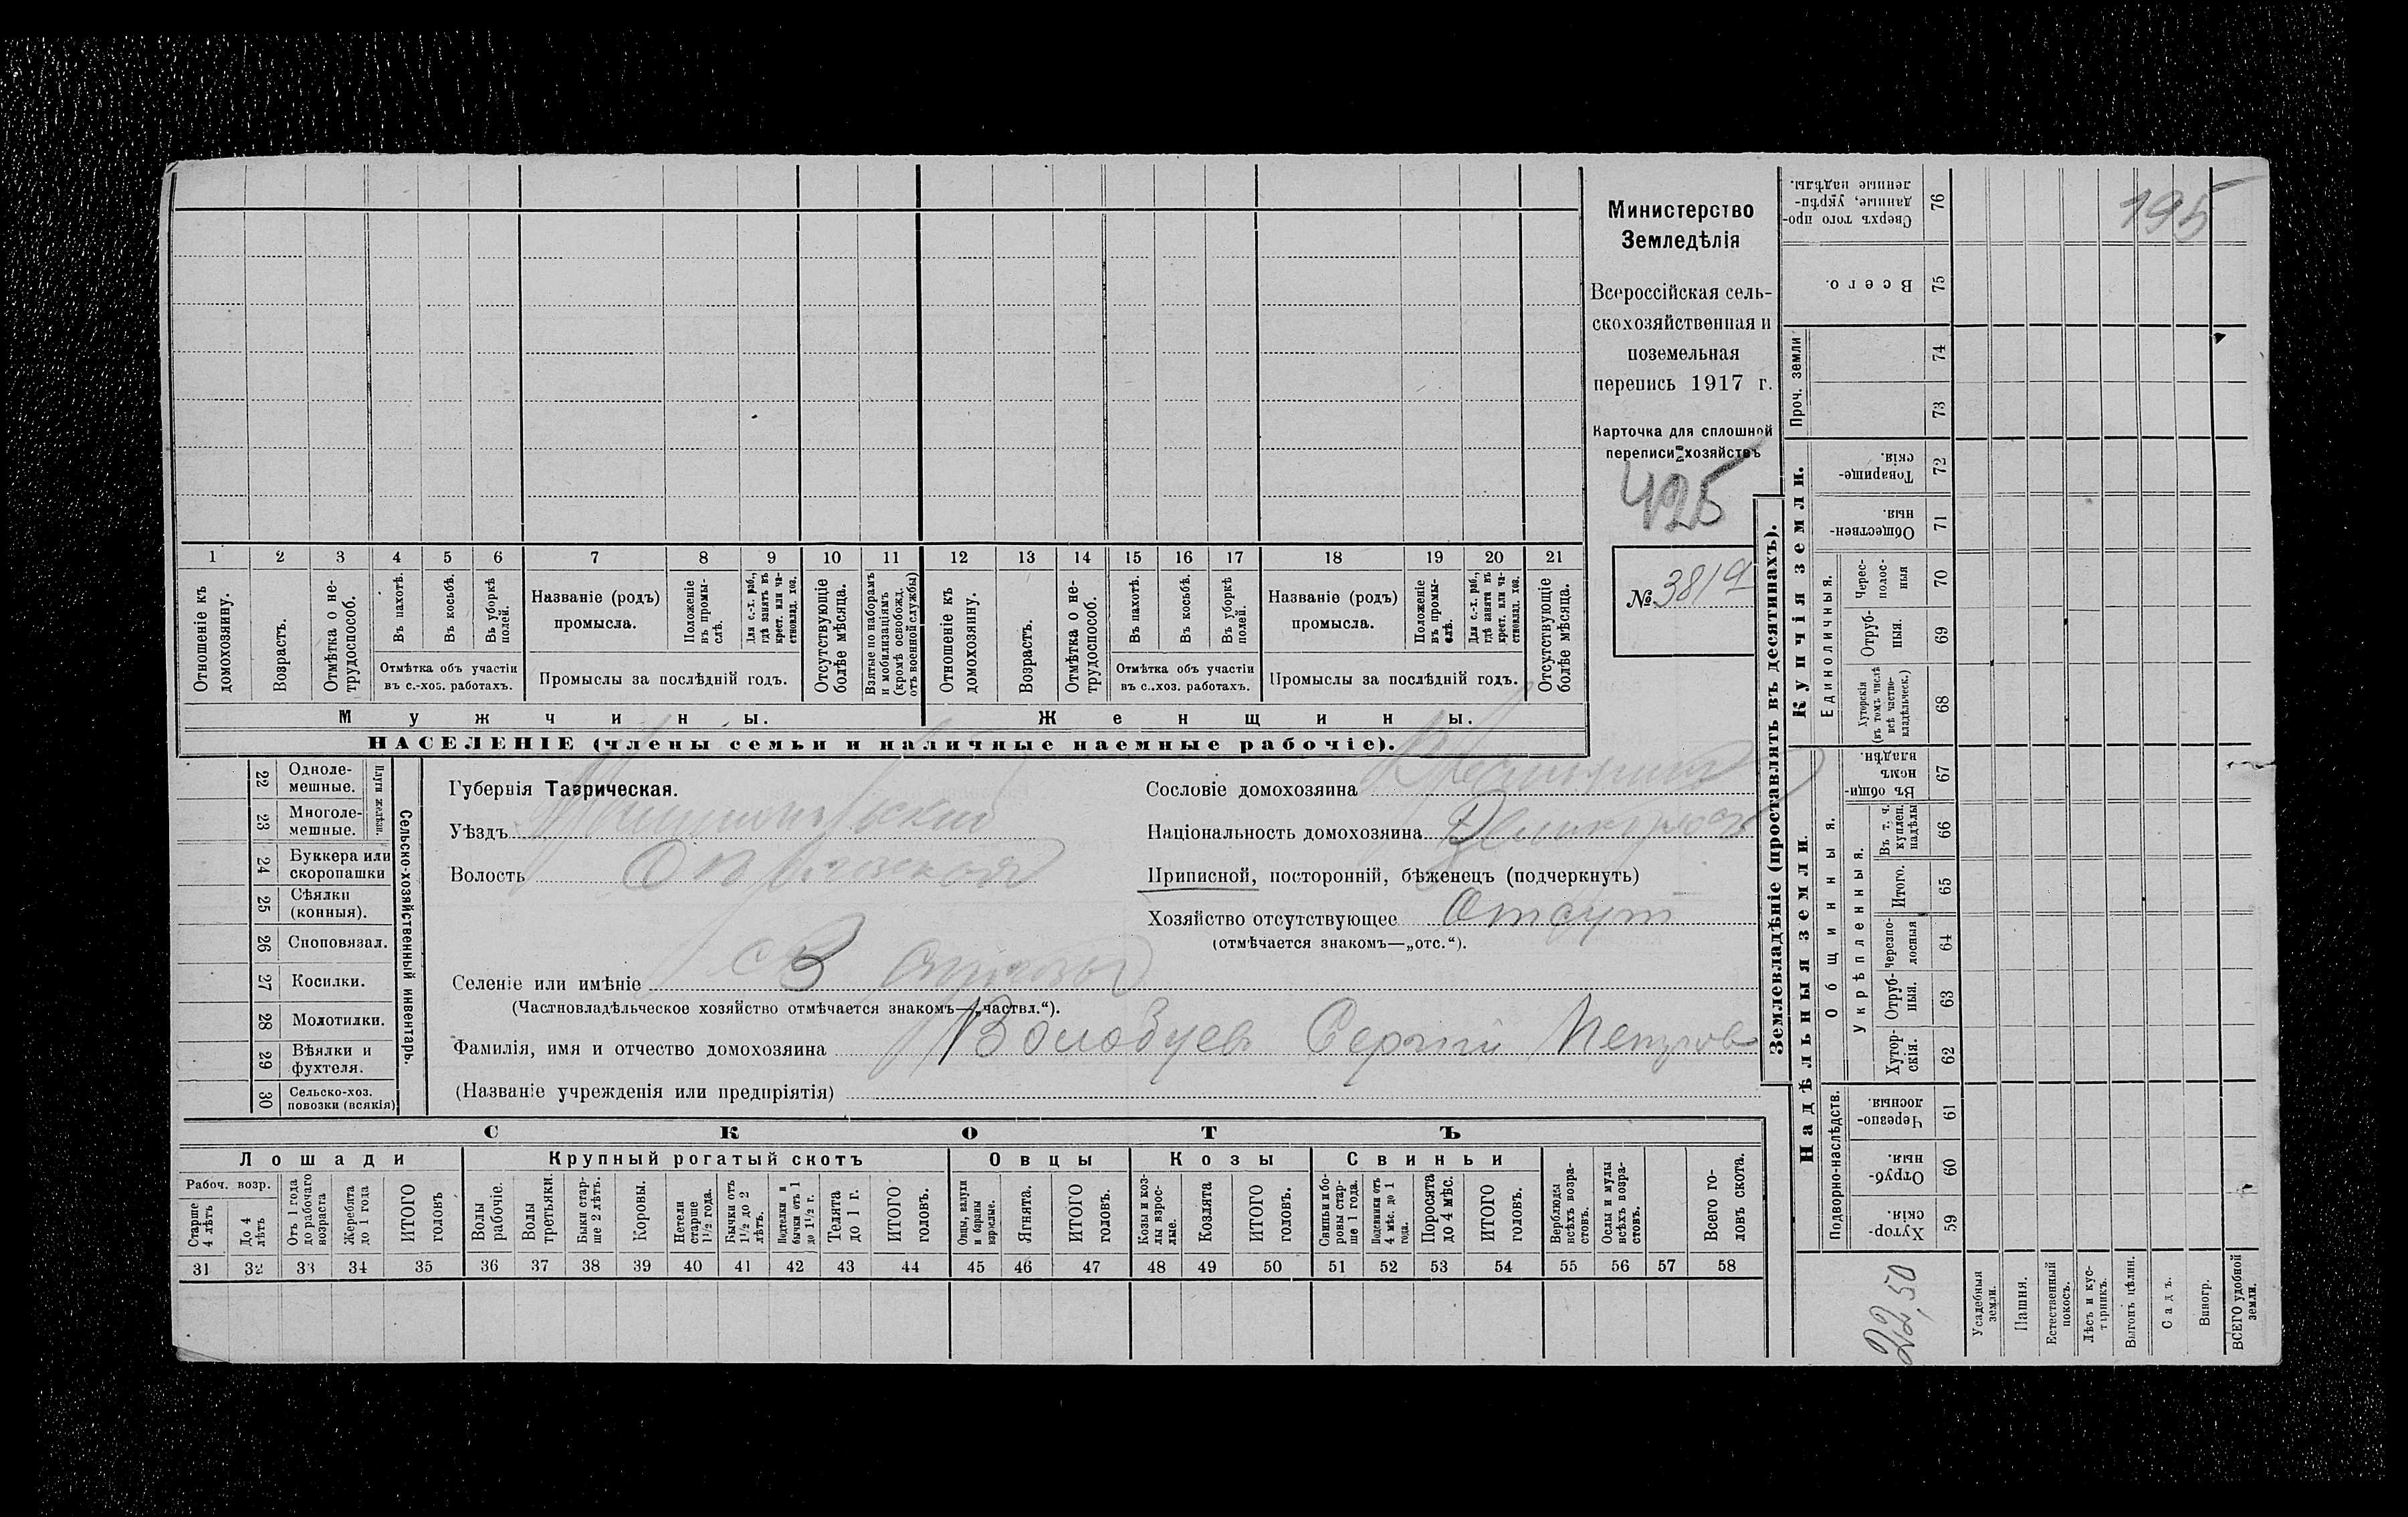 Министерство
Земледѣлія
Всероссійская сель-
скохозяйственная и
поземельная
перепись 1917 г.
Карточка для сплошной
переписи хозяйствъ
425
№ 3819
195
1 2 3 4 5 6 7 8 9 10 11 12 13 14 15 16 17 18 19 20 21
Отношеніе къ домохозяину.
Возрастъ.
Отмѣтка о не-трудоспособ.
Въ пахотѣ.
Въ косьбѣ.
Въ уборкѣ полей.
Отмѣтка объ участіи
въ с.-хоз. работахъ.
Названіе (родъ)
промысла.
Положеніе въ промы-слѣ.
Для с.-х. раб., гдѣ занятъ въ крест. или ча-стновлад. хоз.
Промыслы за послѣдній годъ.
Отсутствующіе болѣе мѣсяца.
Взятые по наборамъ и мобилизаціямъ (кромѣ освобожд. отъ военной службы)
Отношеніе къ домохозяину.
Возрастъ.
Отмѣтка о не-трудоспособ.
Въ пахотѣ.
Въ косьбѣ.
Въ уборкѣ полей.
Отмѣтка объ участіи
въ с.-хоз. работахъ.
Названіе (родъ)
промысла.
Положеніе въ промы-слѣ.
Для с.-х. раб., гдѣ занята въ крест. или ча-стновлад. хоз.
Промыслы за послѣдній годъ.
Отсутствующіе болѣе мѣсяца.
Мужчины.
Женщины.
НАСЕЛЕНІЕ (члены семьи и наличные наемные рабочіе).
22 Одноле-мешные.
23 Многоле-мешные.
Плуги желѣзн.
24 Буккера или скоропашки
25 Сѣялки (конныя).
26 Сноповязал.
27 Косилки.
28 Молотилки.
29 Вѣялки и фухтеля.
30 Сельско-хоз. повозки (всякія)
Сельско-хозяйственный инвентарь.
Губернія Таврическая.
Уѣздъ
Волость
Селеніе или имѣніе с
(Частновладѣльческое хозяйство отмѣчается знакомъ—„частвл.“).
Фамилія, имя и отчество домохозяина Волобуевъ Сергѣй Петров
(Названіе учрежденія или предпріятія)
Сословіе домохозяина Крестьянинъ
Національность домохозяина Великороссъ
Приписной, посторонній, бѣженецъ (подчеркнуть)
Хозяйство отсутствующее Отсут
(отмѣчается знакомъ—„отс.“).
СКОТЪ
Лошади
Крупный рогатый скотъ
Овцы
Козы
Свиньи
Рабоч. возр.
Старше 4 лѣтъ
До 4 лѣтъ
Отъ 1 года до рабочаго возраста
Жеребята до 1 года
ИТОГО головъ
Волы рабочіе.
Волы третьяки.
Быки стар-ше 2 лѣтъ.
Коровы.
Нетели старше 1½ года.
Бычки отъ 1½ до 2 лѣтъ.
Подтелки и бычки отъ 1 до 1½ г.
Телята до 1 г.
ИТОГО головъ.
Овцы, валухи и бараны взрослые.
Ягнята.
ИТОГО головъ.
Козы и коз-лы взрос-лые.
Козлята
ИТОГО головъ.
Свиньи и бо-ровы стар-ше 1 года.
Подсвинки отъ 4 мѣс. до 1 года.
Поросята до 4 мѣс.
ИТОГО головъ.
Верблюды всѣхъ возра-стовъ.
Ослы и мулы всѣхъ возра-стовъ.
Всего го-ловъ скота.
31 32 33 34 35 36 37 38 39 40 41 42 43 44 45 46 47 48 49 50 51 52 53 54 55 56 57 58
Землевладѣніе (проставлять въ десятинахъ).
Надѣльныя земли.
Купчія земли.
Проч. земли
Подворно-наслѣдств.
Общинныя.
Укрѣпленныя.
Единоличныя.
Хутор-скія. 59
Отруб-ныя. 60
Черезпо-лосныя. 61
Хутор-скія. 62
Отруб-ныя. 63
Черезпо-лосныя 64
Итого. 65
Въ т. ч. куплен. надѣлы 66
Въ общи-номъ владѣн. 67
Хуторскія (въ томъ числѣ всѣ частно-владѣльческ.) 68
Отруб-ныя. 69
Черес-полос-ныя 70
Обществен-ныя. 71
Товарище-скія. 72
73
74
Всего. 75
Сверхъ того про-данные, укрѣп-ленные надѣлы. 76
22,50
Усадебныя земли.
Пашня.
Естественный покосъ.
Лѣсъ и кус-тарникъ.
Выгонъ цѣлин.
Садъ.
Виногр.
ВСЕГО удобной земли.